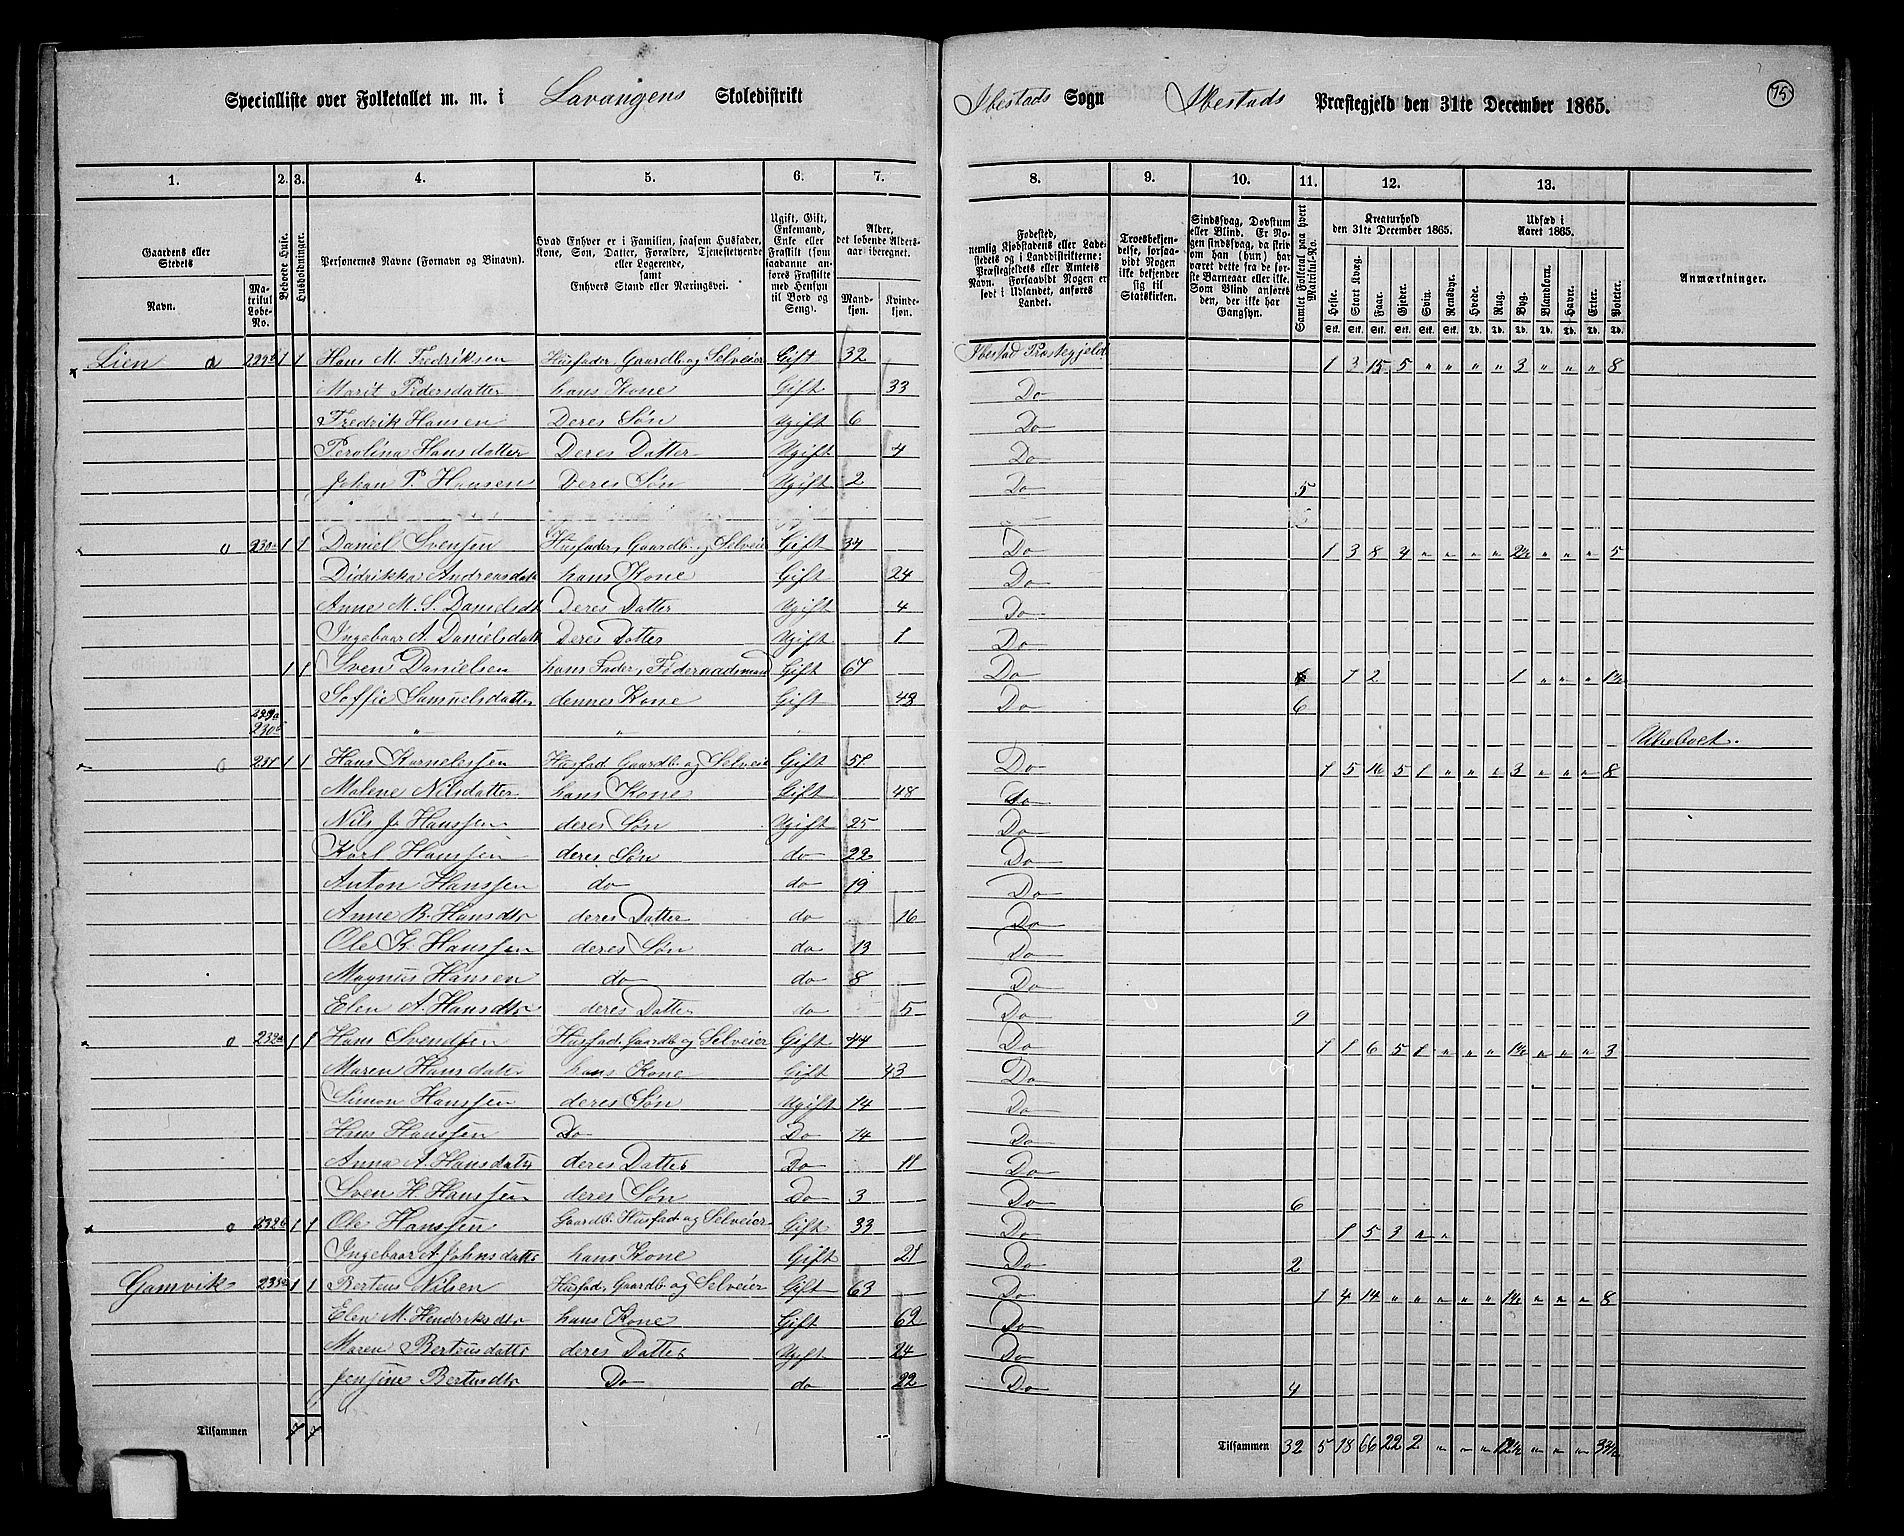 75
Specialliste over Folketallet m. m. i Lavangens Skoledistrikt Ibestads Sogn Ibestads Præstegjeld den 31te December 1865.
1. 2. 3. 4. 5. 6. 7. 8. 9. 10. 11. 12. 13.
Gaardens eller Stedets
Navn.
Matrikul Løbe-No.
Beboede Huse.
Husholdninger.
Personernes Navne (Fornavn og Binavn).
Hvad Enhver er i Familien, saasom Husfader, Kone, Søn, Datter, Forældre, Tjenestetyende eller Logerende, samt Enhvers Stand eller Næringsvei.
Ugift, Gift, Enkemand, Enke eller Fraskilt (som saadanne anføres Fraskilte med Hensyn til Bord og Seng).
Alder, det løbende Aldersaar iberegnet.
Mandkjøn.
Kvindekjøn.
Fødested, nemlig Kjøbstadens eller Ladestedets og i Landdistrikterne: Præstegjeldets eller Amtets Navn. Forsaavidt Nogen er født i Udlandet, anføres Landet.
Troesbekjendelse, forsaavidt Nogen ikke bekjender sig til Statskirken.
Sindssvag, Døvstum eller Blind. Om Nogen sindssvag, da skriv om han (hun) har været dette fra de første Barneaar eller ikke. Som Blind anføres den, der ikke har Gangsyn.
Samlet Folketal paa hvert Matrikul-No.
Kreaturhold den 31te December 1865.
Heste. Stort Kvæg. Faar. Gjeder. Svin. Rensdyr.
Stk. Stk. Stk. Stk. Stk. Stk.
Udsæd i Aaret 1865.
Hvede. Rug. Byg. Blandkorn. Havre. Erter. Poteter.
Td. Td. Td. Td. Td. Td. Td.
Anmærkninger.
Lien a 229b 1 1 Hans M. Fredriksen Husfader, Gaardb. og Selveier Gift 32 Ibestad Præstegjeld 1 3 15 5 " " " " 3 " " " 8
Marit Pedersdatter hans Kone Gift 33 Do
Fredrik Hansen Deres Søn Ugift 6 Do
Perolina Hansdatter Deres Datter Ugift 4 Do
Johan P. Hansen Deres Søn Ugift 2 Do 5
o 230a 1 1 Daniel Svensen Husfader, Gaardb. og Selveier Gift 34 Do 1 3 8 4 " " " " 2½ " " " 5
Didrikka Andreasdatt hans Kone Gift 24 Do
Anne M. S. Danielsdt Deres Datter Ugift 4 Do
Ingebaar A. Danielsdatt Deres Datter Ugift 1 Do
1 1 Sven Danielsen hans Fader, Føderaadsmand Gift 67 Do 1 2 1 " " " 1½
Soffie Samuelsdatter dennes Kone Gift 48 Do 6
230b " " Ubeboet.
o 231 1 1 Hans Kornelessen Husfad. Gaardb. og Selveier Gift 51 Do 1 5 16 5 1 " " " 3 " " " 8
Malene Nilsdatter hans Kone Gift 48 Do
Nils J. Hanssen deres Søn Ugift 25 Do
Karl Hanssen deres Søn do 22 Do
Anton Hanssen do do 19 Do
Anne B. Hansdtr deres Datter do 16 Do
Ole K. Hanssen deres Søn do 13 Do
Magnus Hansen do do 8 Do
Elen A. Hansdtr deres Datter do 5 Do 9
o 232a 1 1 Hans Svendsen Husfad. Gaardb. og Selveier Gift 44 Do 1 1 6 5 1 " " " 1½ " " " 3
Maren Hansdatter hans Kone Gift 43 Do
Simon Hanssen deres Søn Ugift 14 Do
Hans Hanssen Do Do 14 Do
Anna A. Hansdatter deres Datter Do 11 Do
Sven H. Hanssen deres Søn Do 3 Do 6
o 232b 1 1 Ole Hanssen Gaardb. Husfad. og Selveier Gift 33 Do 1 5 3 " "
Ingebaar A. Johnsdatter hans Kone Gift 21 Do 2
Gamvik 233a 1 1 Berteus Nilsen Husfader, Gaardb. og Selveier Gift 63 Do 1 4 14 " " " " " 1½ " " " 8
Elen M. Hendriksdtr hans Kone Gift 62 Do
Maren Berteusdatter deres Datter Ugift 24 Do
Jensine Berteusdtr Do do 22 Do 4
Tilsammen 7 7 Tilsammen 32 5 18 66 22 2 " " " 12½ " " " 33½